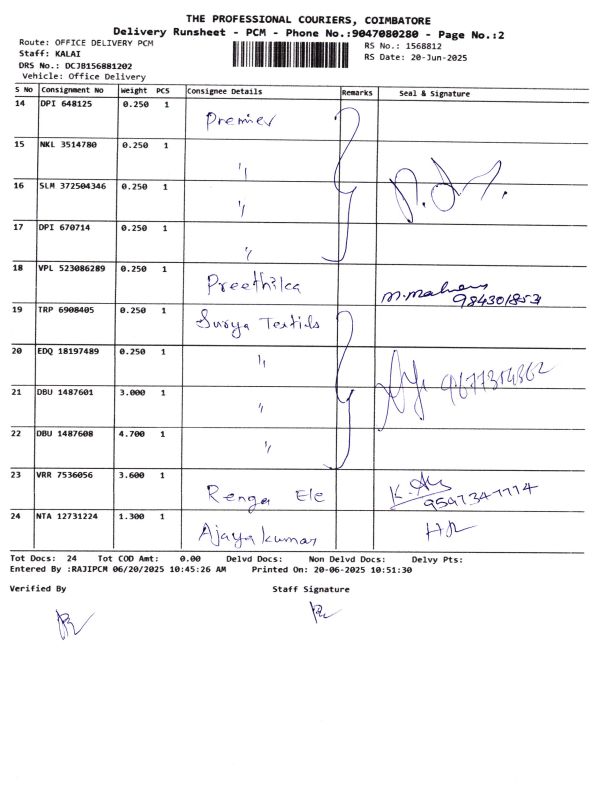 THE PROFESSIONAL COURIERS, COIMBATORE
Delivery Runsheet - PCM - Phone No.:9047080280 - Page No.:2
Route: OFFICE DELIVERY PCM
Staff: KALAI
DRS No.: DCJB156881202
Vehicle: Office Delivery
RS No.: 1568812
RS Date: 20-Jun-2025
S No Consignment No Weight PCS Consignee Details Remarks Seal & Signature
14 DPI 648125 0.250 1 Premier
15 NKL 3514780 0.250 1 "
16 SLM 372504346 0.250 1 "
17 DPI 670714 0.250 1 "
18 VPL 523086289 0.250 1 Preethika 984301853
19 TRP 6908405 0.250 1 Surya Textils
20 EDQ 18197489 0.250 1 "
21 DBU 1487601 3.000 1 "
22 DBU 1487608 4.700 1 "
23 VRR 7536056 3.600 1 Renga Ele
24 NTA 12731224 1.300 1 Ajaya kumar
Tot Docs: 24 Tot COD Amt: 0.00 Delvd Docs: Non Delvd Docs: Delvy Pts:
Entered By :RAJIPCM 06/20/2025 10:45:26 AM Printed On: 20-06-2025 10:51:30
Verified By Staff Signature